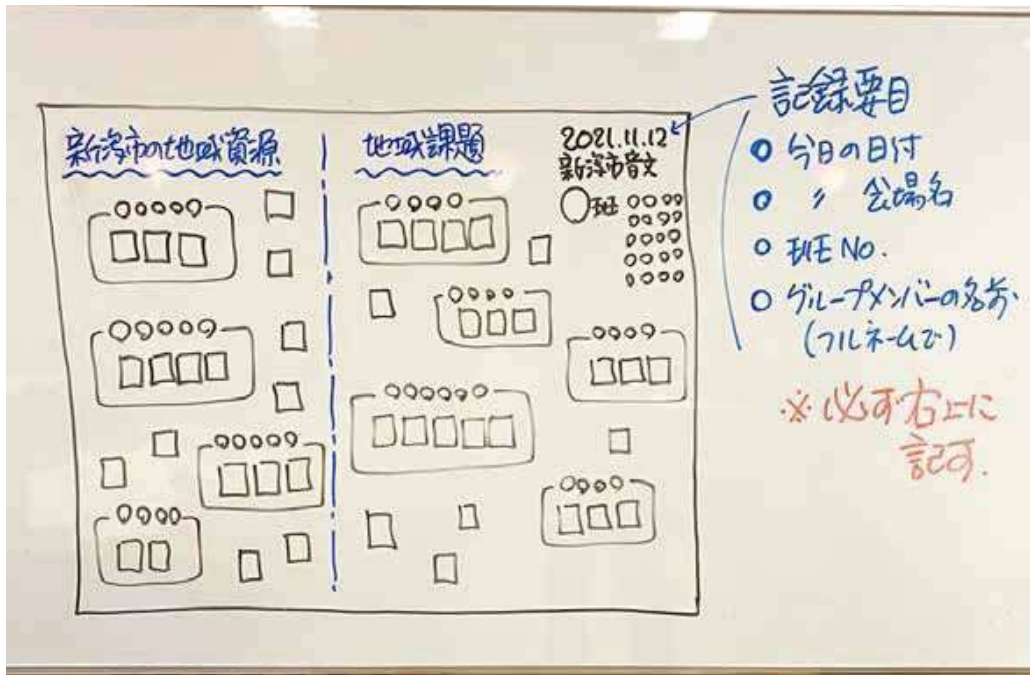 新潟市の地域資源
地域課題
2021.11.12
新潟市音文
○班 ○○○○
○○○○
○○○○
○○○○
○○○○
○○○○○
○○○○○
○○○○○
○○○○
○○○○
○○○○
○○○○
○○○○○○
○○○○
記録要目
○ 今日の日付
○ 〃 会場名
○ 班 No.
○ グループメンバーの名前
(フルネームで)
※必ず右上に
記す.